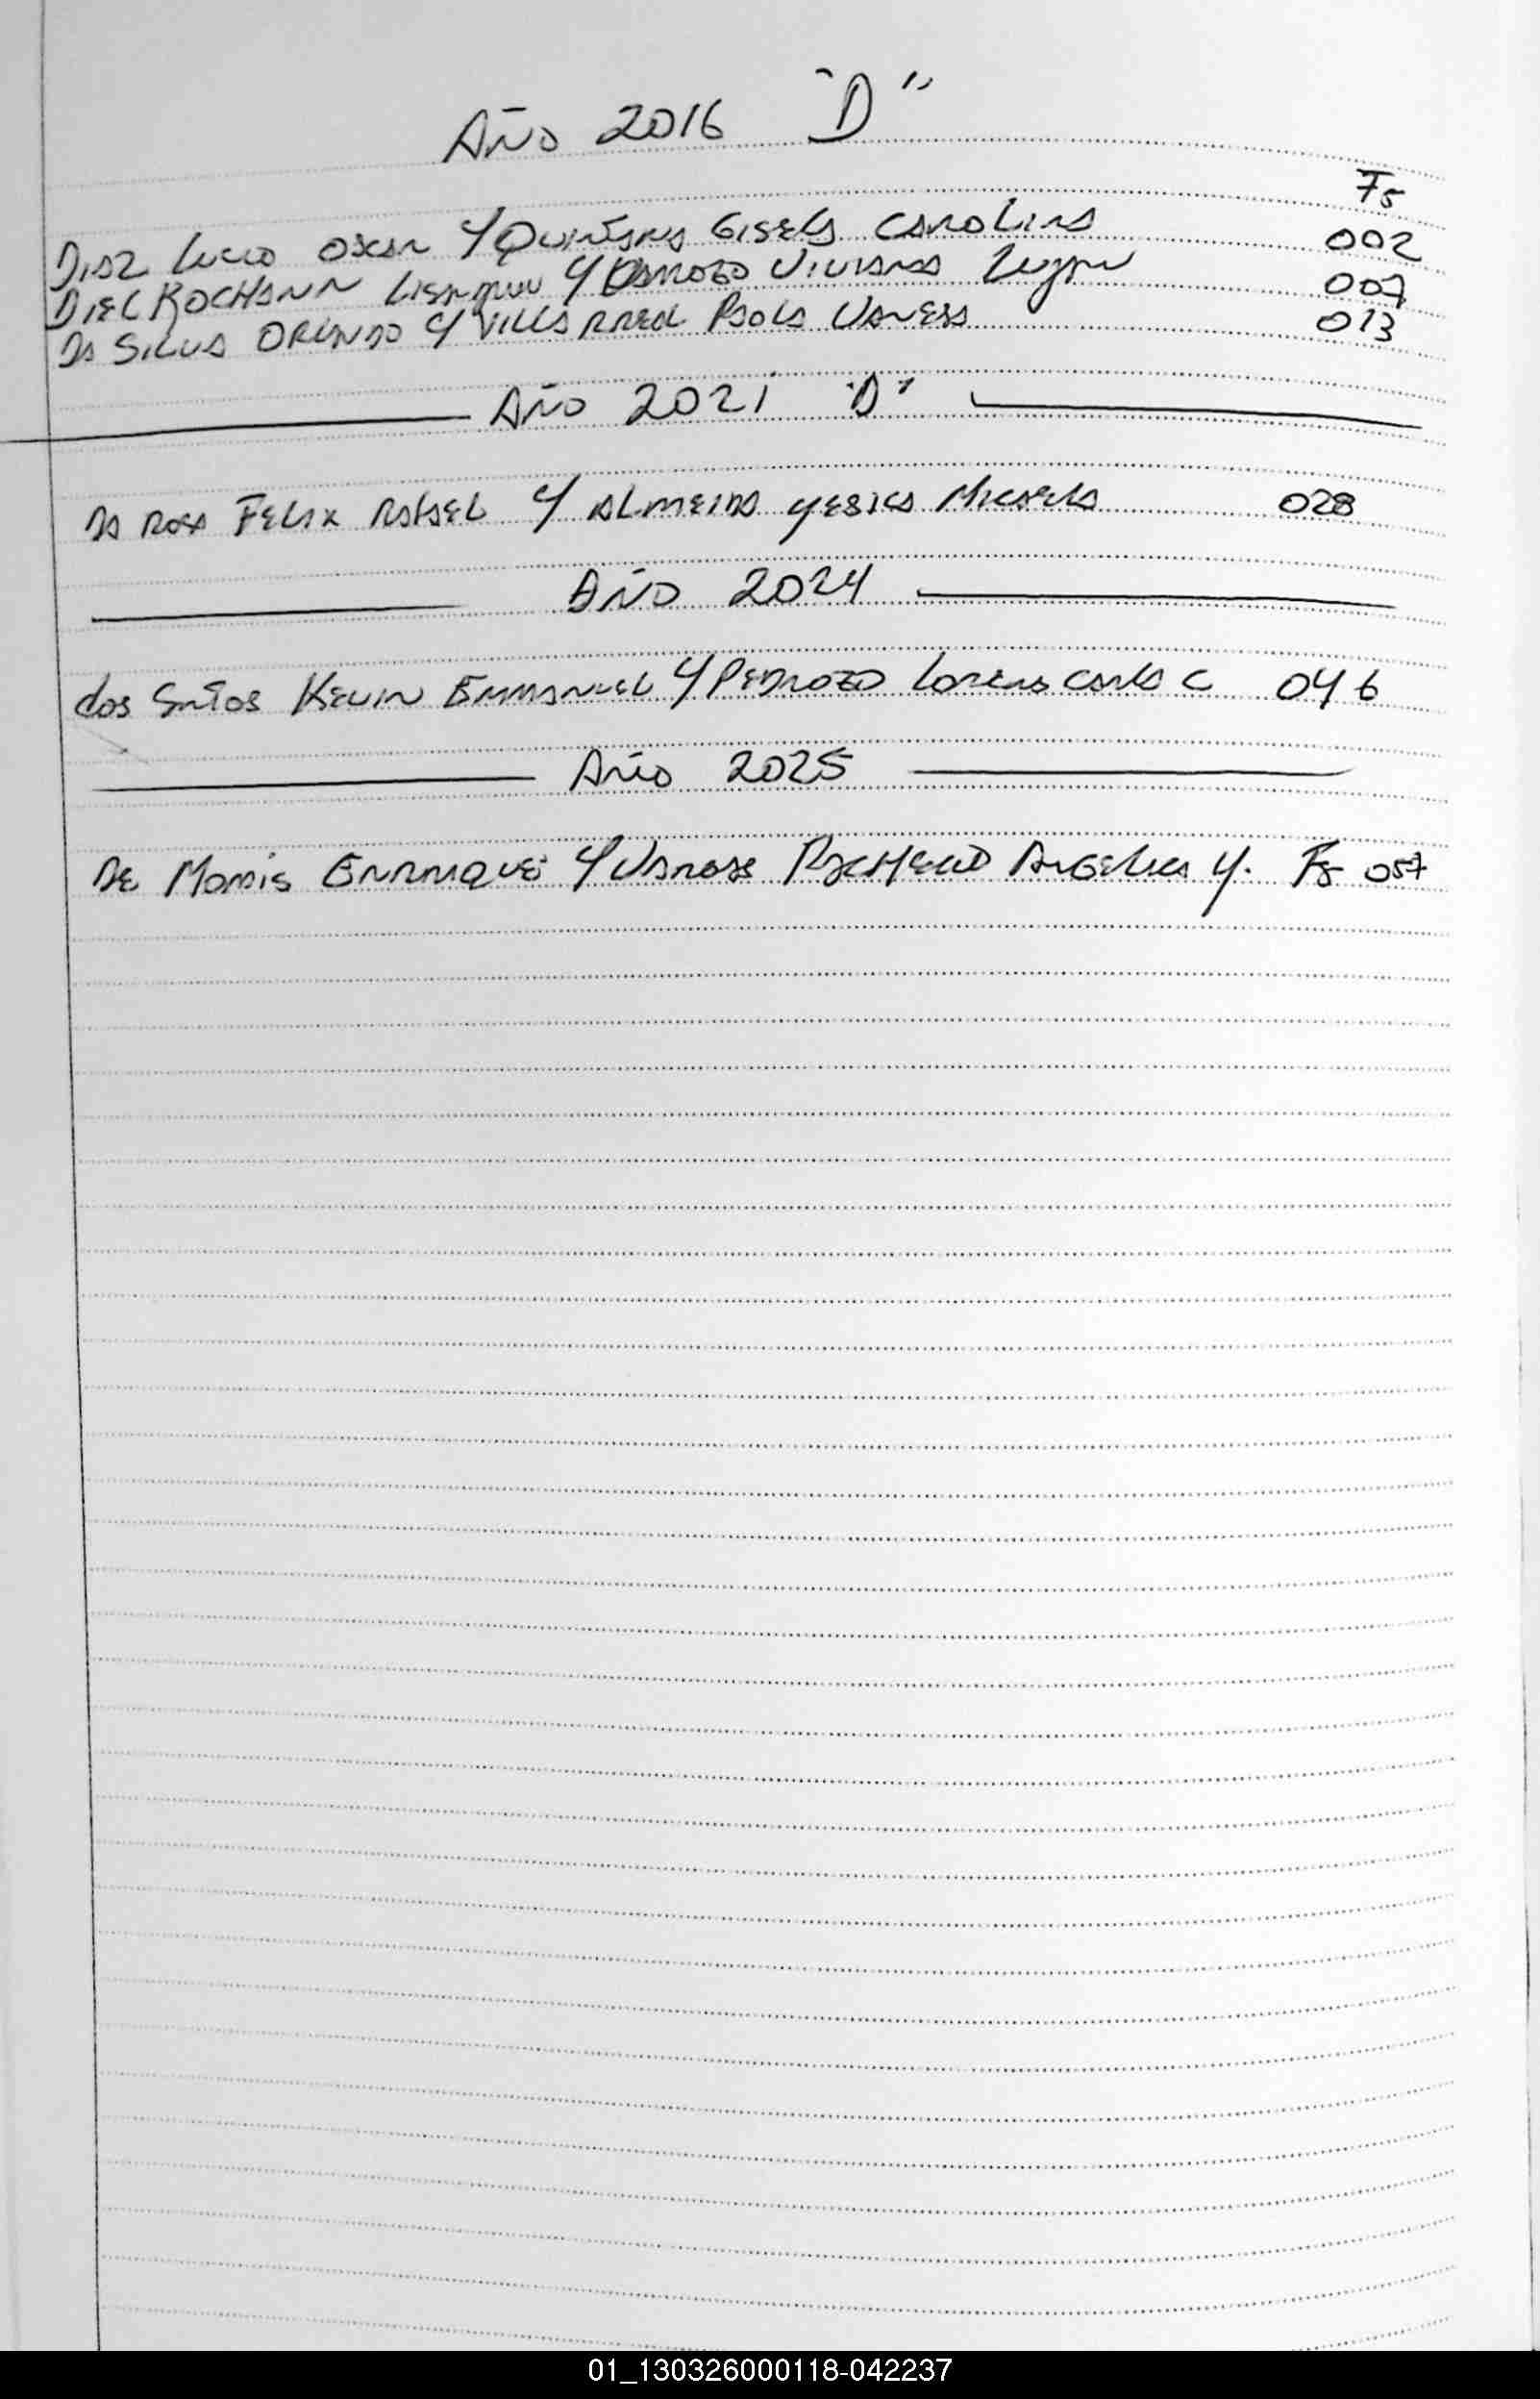 AÑO 2016 "D"
Fs
DIAZ Lucio OSCAR Y QUINTANA GISELA CAROLINA 002
DIEL KOCHANN Y VIVIANA Lujan 007
DA SILVA ORLANDO Y VILLARREAL PAOLA VANESA 013
AÑO 2021 "D"
DA ROSA FELIX RAFAEL Y ALMEIDA YESICA MICAELA 028
AÑO 2024
dos Santos KEVIN EMMANUEL Y PEDROZO LORENA CARLA C 046
AÑO 2025
DE Y PACHECO ANGELICA Y. Fs 057
01_130326000118-042237